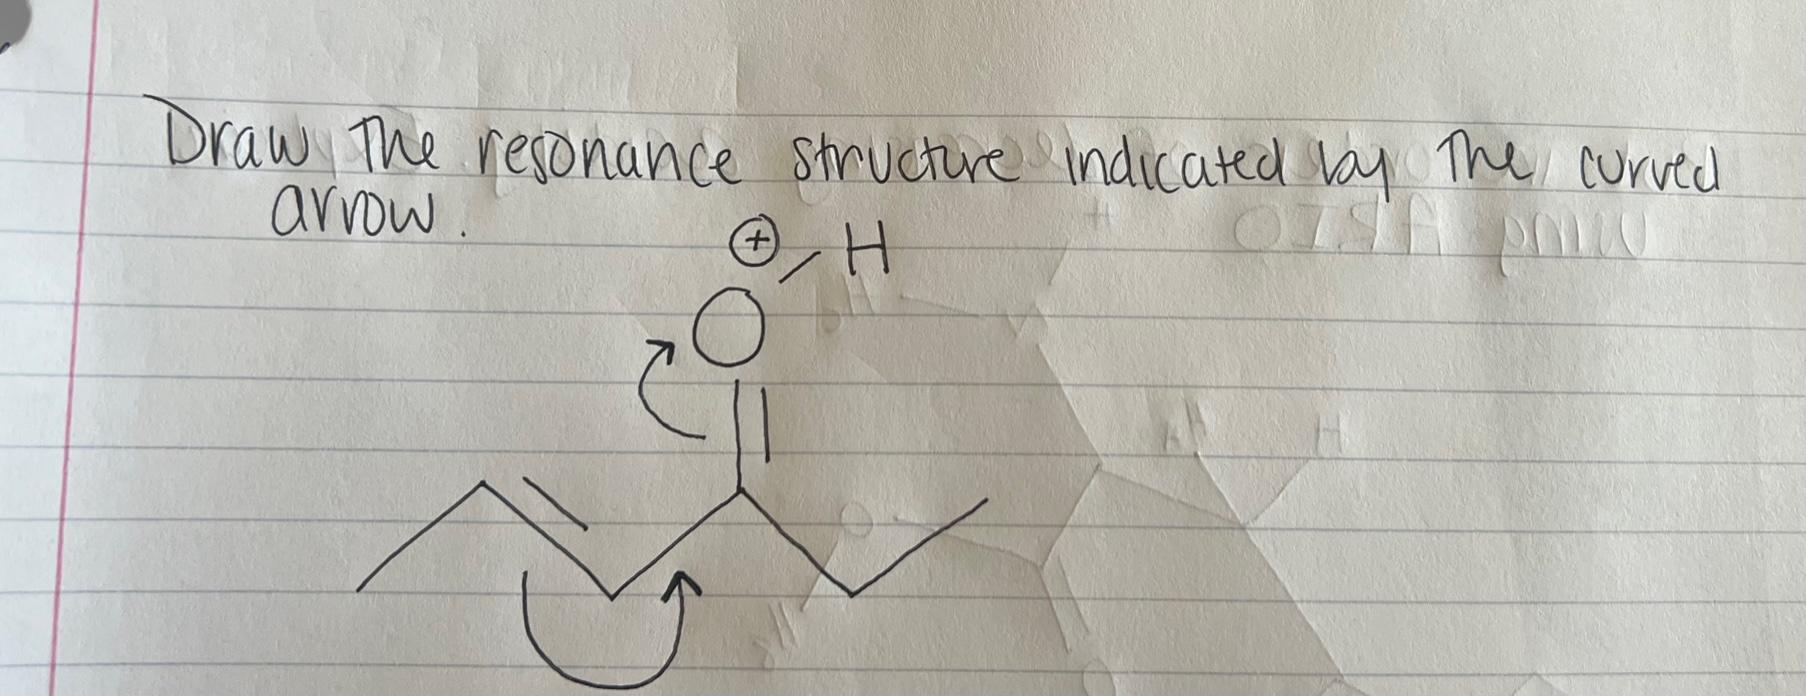 Draw the resonance structure indicated by the curved
arrow.
⊕
H
O